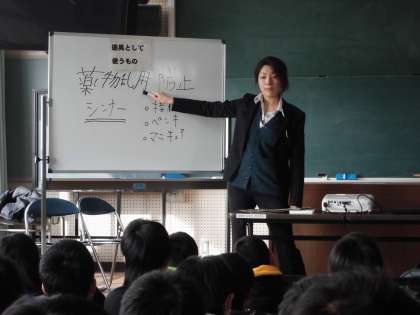 道具として
使うもの
薬物乱用防止
シンナー
ペンキ
マニキュア